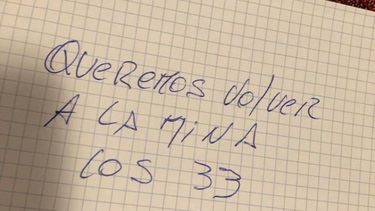 QUEREMOS VOLVER
A LA MINA
LOS 33